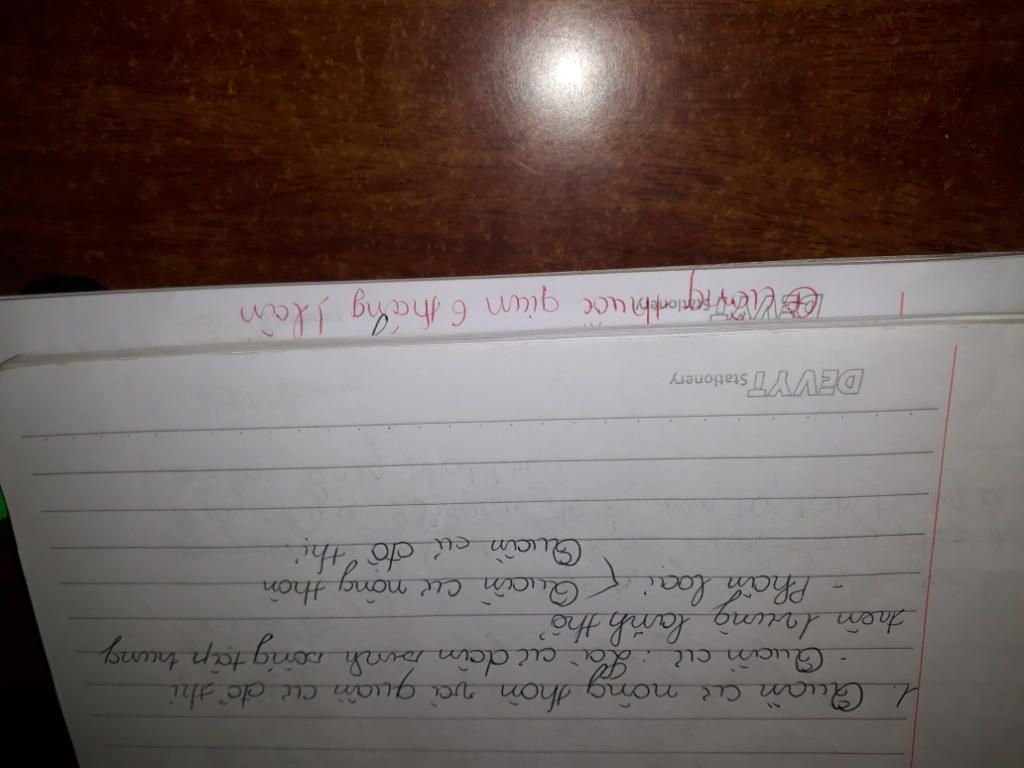 1. Quần cư nông thôn và quần cư đô thị
- Quần cư: Là cư dân sinh sống tập trung
trên 1 vùng lãnh thổ
- Phân loại: { Quần cư nông thôn
Quần cư đô thị
DEVYT Stationery
⊕ uống thuốc giun 6 tháng 1 lần
DEVYT Stationery